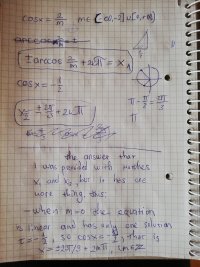 cosx = 2/m   m ∈ (-∞,-2] ∪ [2,+∞)
± arccos 2/m + 2πn = x₁
cosx = -1/2
x₂ = ± 2π/3 + 2πn
π - π/3 = 2π/3
π
the answer that
I was provided with matches
x₁ and x₂, but it has one
more thing, this:
- when m=0 the equation
is linear and has only one solution
t = -1/2, so cosx = -1/2, that is
x = ± 2π/3 + 2πn, n∈Z